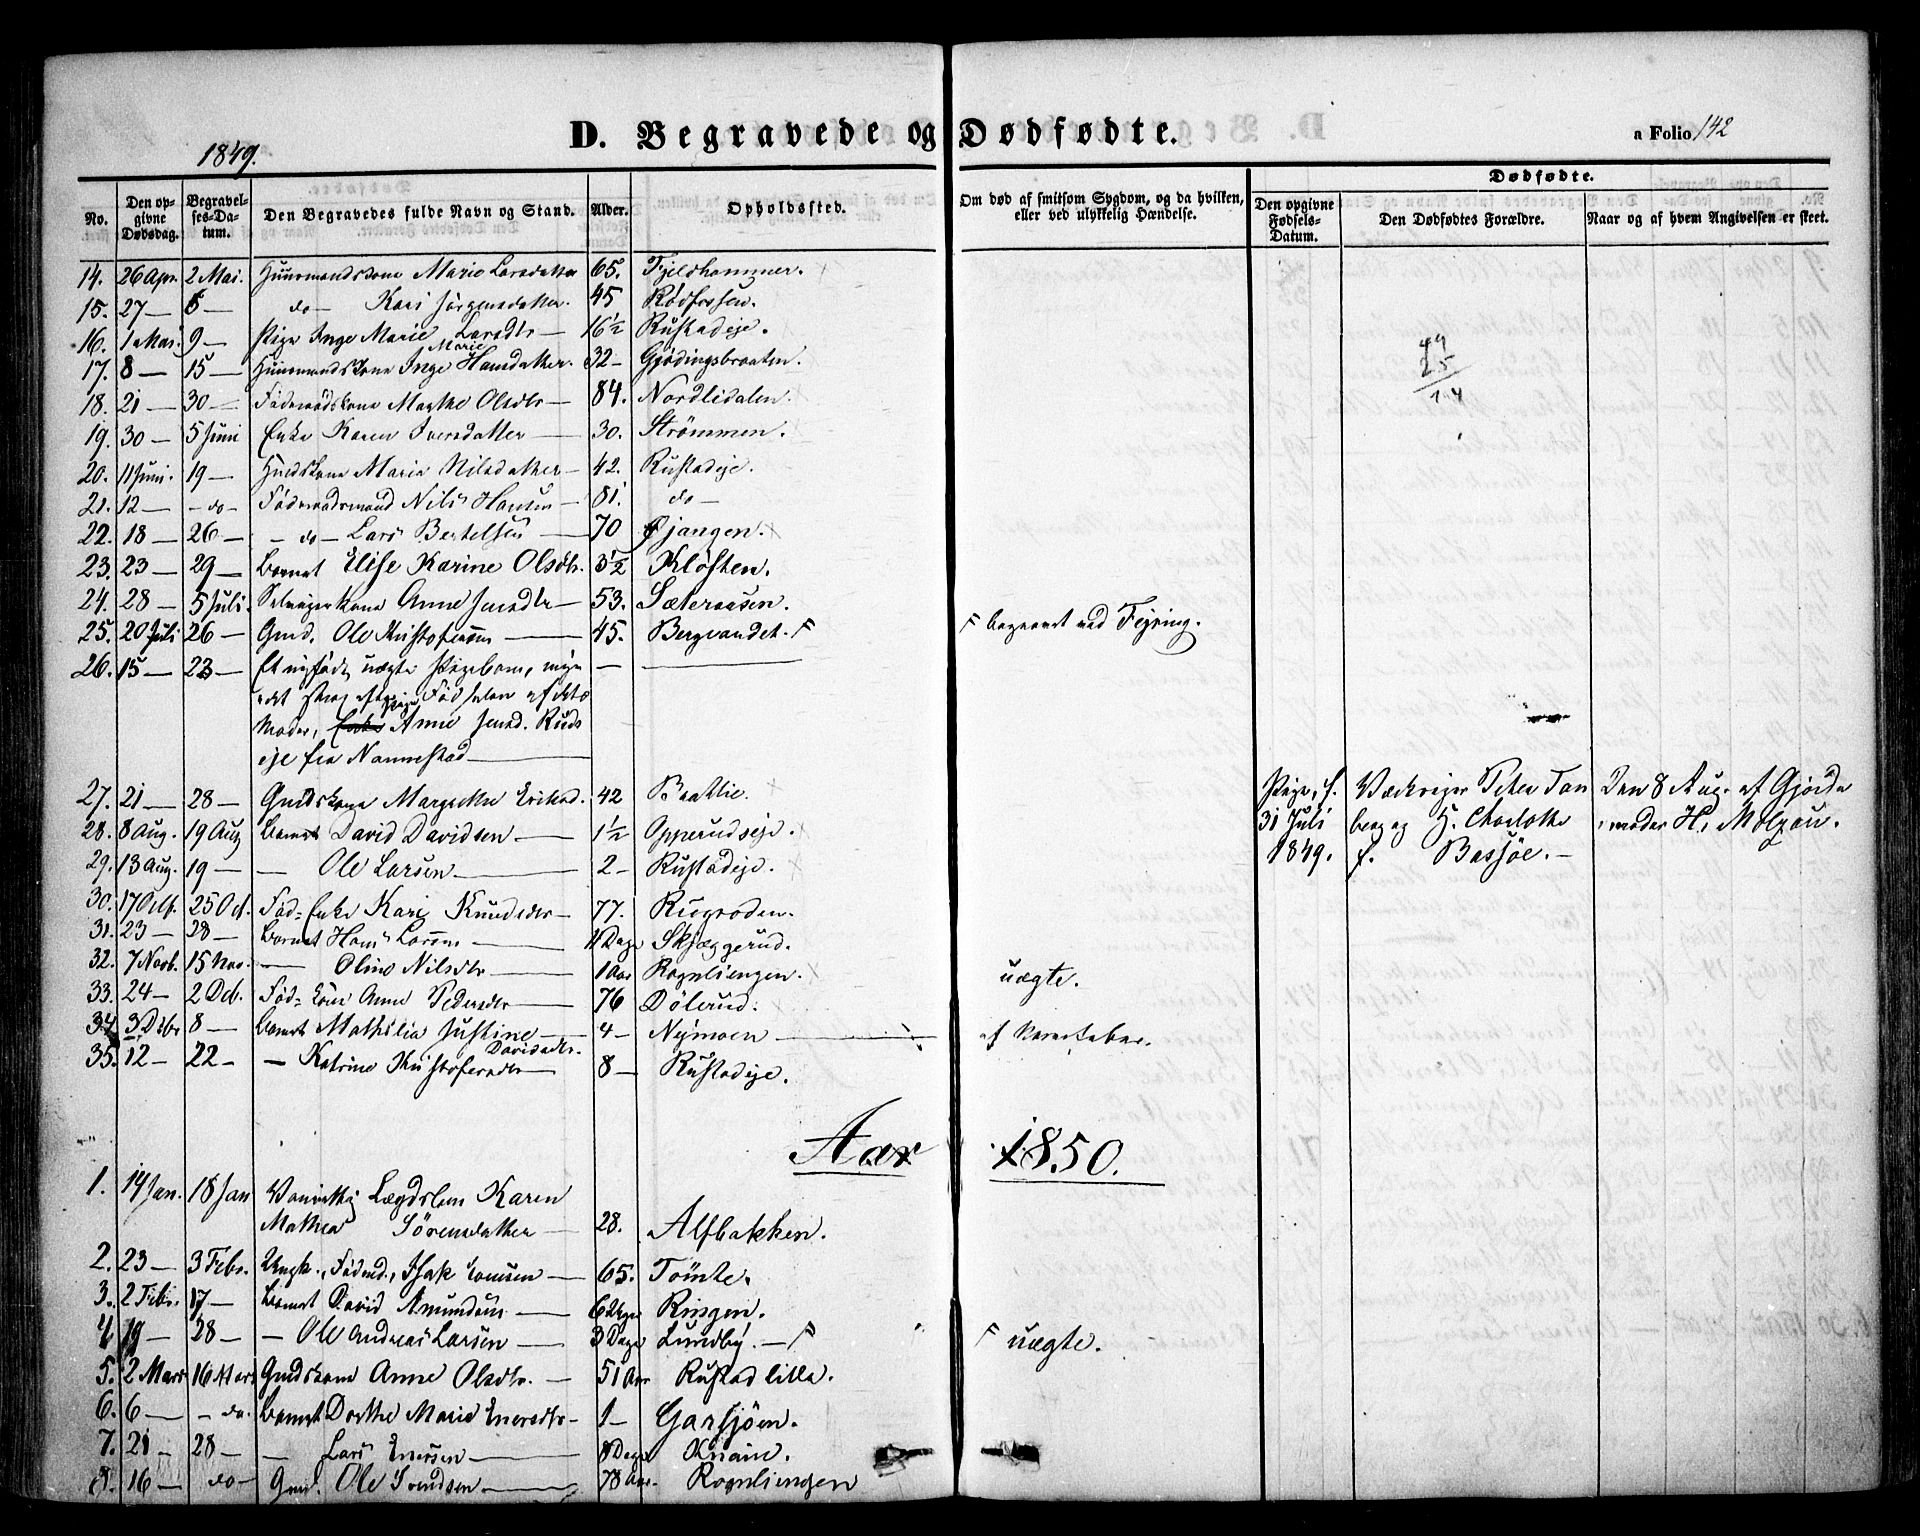 1849.
D. Begravede og Dødfødte.
a Folio 142
Dødfødte.
No. Den opgivne Dødsdag. Begravelses-Datum. Den Begravedes fulde Navn og Stand. Alder. Opholdssted. Om død af smitsom Sygdom, og da hvilken, eller ved ulykkelig Hændelse. Den opgivne Fødsels-Datum. Den Dødfødtes Forældre. Naar og af hvem Angivelsen er skeet.
14. 26 Apr. 2 Mai. Huusmandskone Marie Larsdatter 65. Fjeldhammer.
15. 27 — 5 — do — Kari Jørgensdatter. 45 Rødfossen.
16. 1 Mai 9 — Pige Inge Marie Larsdtr — 16½ Rustadeje.
17. 8 — 15 — Huusmandskone Inge Marie Hansdatter. 32 — Gjødingsbraaten.
18. 21 — 30 — Føderaadskone Marthe Olsdtr — 84. Nordlidalen.
19. 30 — 5 Juni Enke Karen Iversdatter — 30. Strømmen.
20. 11 Juni. 19 — Hmdskone Marie Nilsdatter — 42. Rustadeje.
21. 12 — do — Føderaadsmand Nils Hansen — 81. do —
22. 18 — 26 — do — Lars Bertelsen 70 Øjangen.
23. 23 — 29 — Barnet Elise Karine Olsdtr. 3½ Kløften.
24. 28 — 5 Juli. Selveierkone Anne Jensdtr — 53. Sæteraasen.
25. 20 Juli 26 — Gmd. Ole Kristofersen — 45. Bergvandet. F F begravet ved Fejring.
26. 15 — 23 — Et nyfødt uægte Pigebarn, —
Fødselen
Moder, Enke Anne Jensd. Ruds
eje fra Nannestad —
27. 21 — 28 — Gmdskone Margrethe Eriksd. 42 Baatlie. Pige, f. 31 Juli 1849. Peter Tanberg og H. Charlotte f. Bassøe. — Den 8 Aug. af Gjordemoder H. Molzau.
28. 8 Aug. 19 Aug Barnet David Davidsen — 1½ Opperudseje.
29. 13 Aug. 19 — — Ole Larsen — 2 — Rustadeje.
30. 17 Oct. 25 Oct. Fød-Enke Kari Knudsdtr — 77. Rugroden.
31. 23 — 28 — Barnet Hans Larsen — 11 Dage Skjæggerud.
32. 7 Novb. 15 Nov. — Oline Nilsdtr — 1 Aar Rognliengen. uægte.
33. 24 — 2 Deb. Fød-kone Anne Pedersdtr — 76 Dølerud.
34 3 Dbr 8 — Barnet Mathilia Justine Davidsdtr. 4 — Nymoen —
35. 12 — 22 — — Katrine Kristofersdtr — 8 — Rustadeje.
49
25
14
Aar 1850.
1. 14 Jan. 18 Jan Vanvittig Lægdslem Karen
Mathea Sørensdatter — 28. Alfbakken.
2. 23 — 3 Febr. Ungk., Fødmd., Isak Jonsen — 65. Tømte.
3. 2 Febr. 17 — Barnet David Amundsen — 6 Uger Ringen.
4 19 — 28 — — Ole Andreas Larsen — 3 Dage Lundby. — F F uægte.
5. 2 Mars 16 Mars Gmdskone Anne Olsdtr. — 51 Aar Rustad lille.
6. 6 — — do. Barnet Dorthe Marie Enersdtr — 1 — Garsjøen.
7. 21 — 28 — — Lars Enersen — 8 Dage Knain.
8. 16 — do — Gmd. Ole Svendsen — 78 Aar. Rognliengen